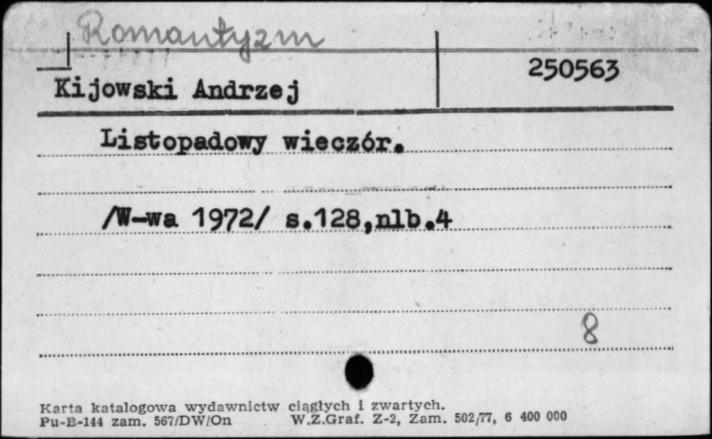 Romantyzm
250563
Kijowski Andrzej
Listopadowy wieczór.
/W-wa 1972/ s.128,nlb.4
8
Karta katalogowa wydawnictw ciągłych i zwartych.
Pu-B-144 zam. 567/DW/On W.Z.Graf. Z-2, Zam. 502/77, 6 400 000